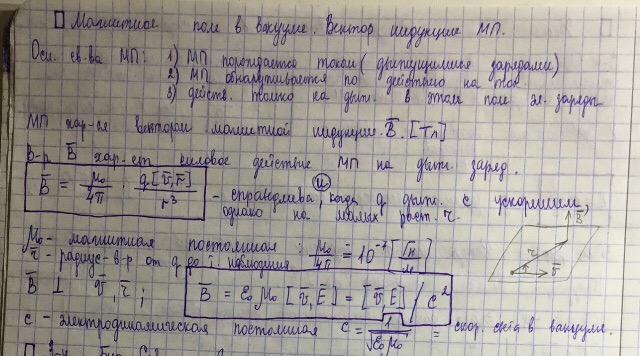 Магнитное поле в вакууме. Вектор индукции МП.
Осн. св-ва МП: 1) МП порождается током (движущимися зарядами)
2) МП обнаруживается по действию на ток.
3) действ. только на движ. в этом поле эл. заряды
МП хар-ся вектором магнитной индукции B̄. [Тл]
В-р B̄ хар-ет силовое действие МП на движ. заряд.
B̄ = μ₀/4π · q[v̄,r̄]/r³ - справедлива и, когда q движ. с ускорением,
однако на малых раст. r.
μ₀ - магнитная постоянная: μ₀/4π = 10⁻⁷ [Гн/м]
r̄ - радиус-в-р от q до т. наблюдения
B̄ ⊥ v̄, r̄; B̄ = ε₀μ₀ [v̄,Ē] = [v̄,Ē]/c²
B̄
r̄
v̄
c - электродинамическая постоянная c = 1/√ε₀μ₀ = скор. света в вакууме.